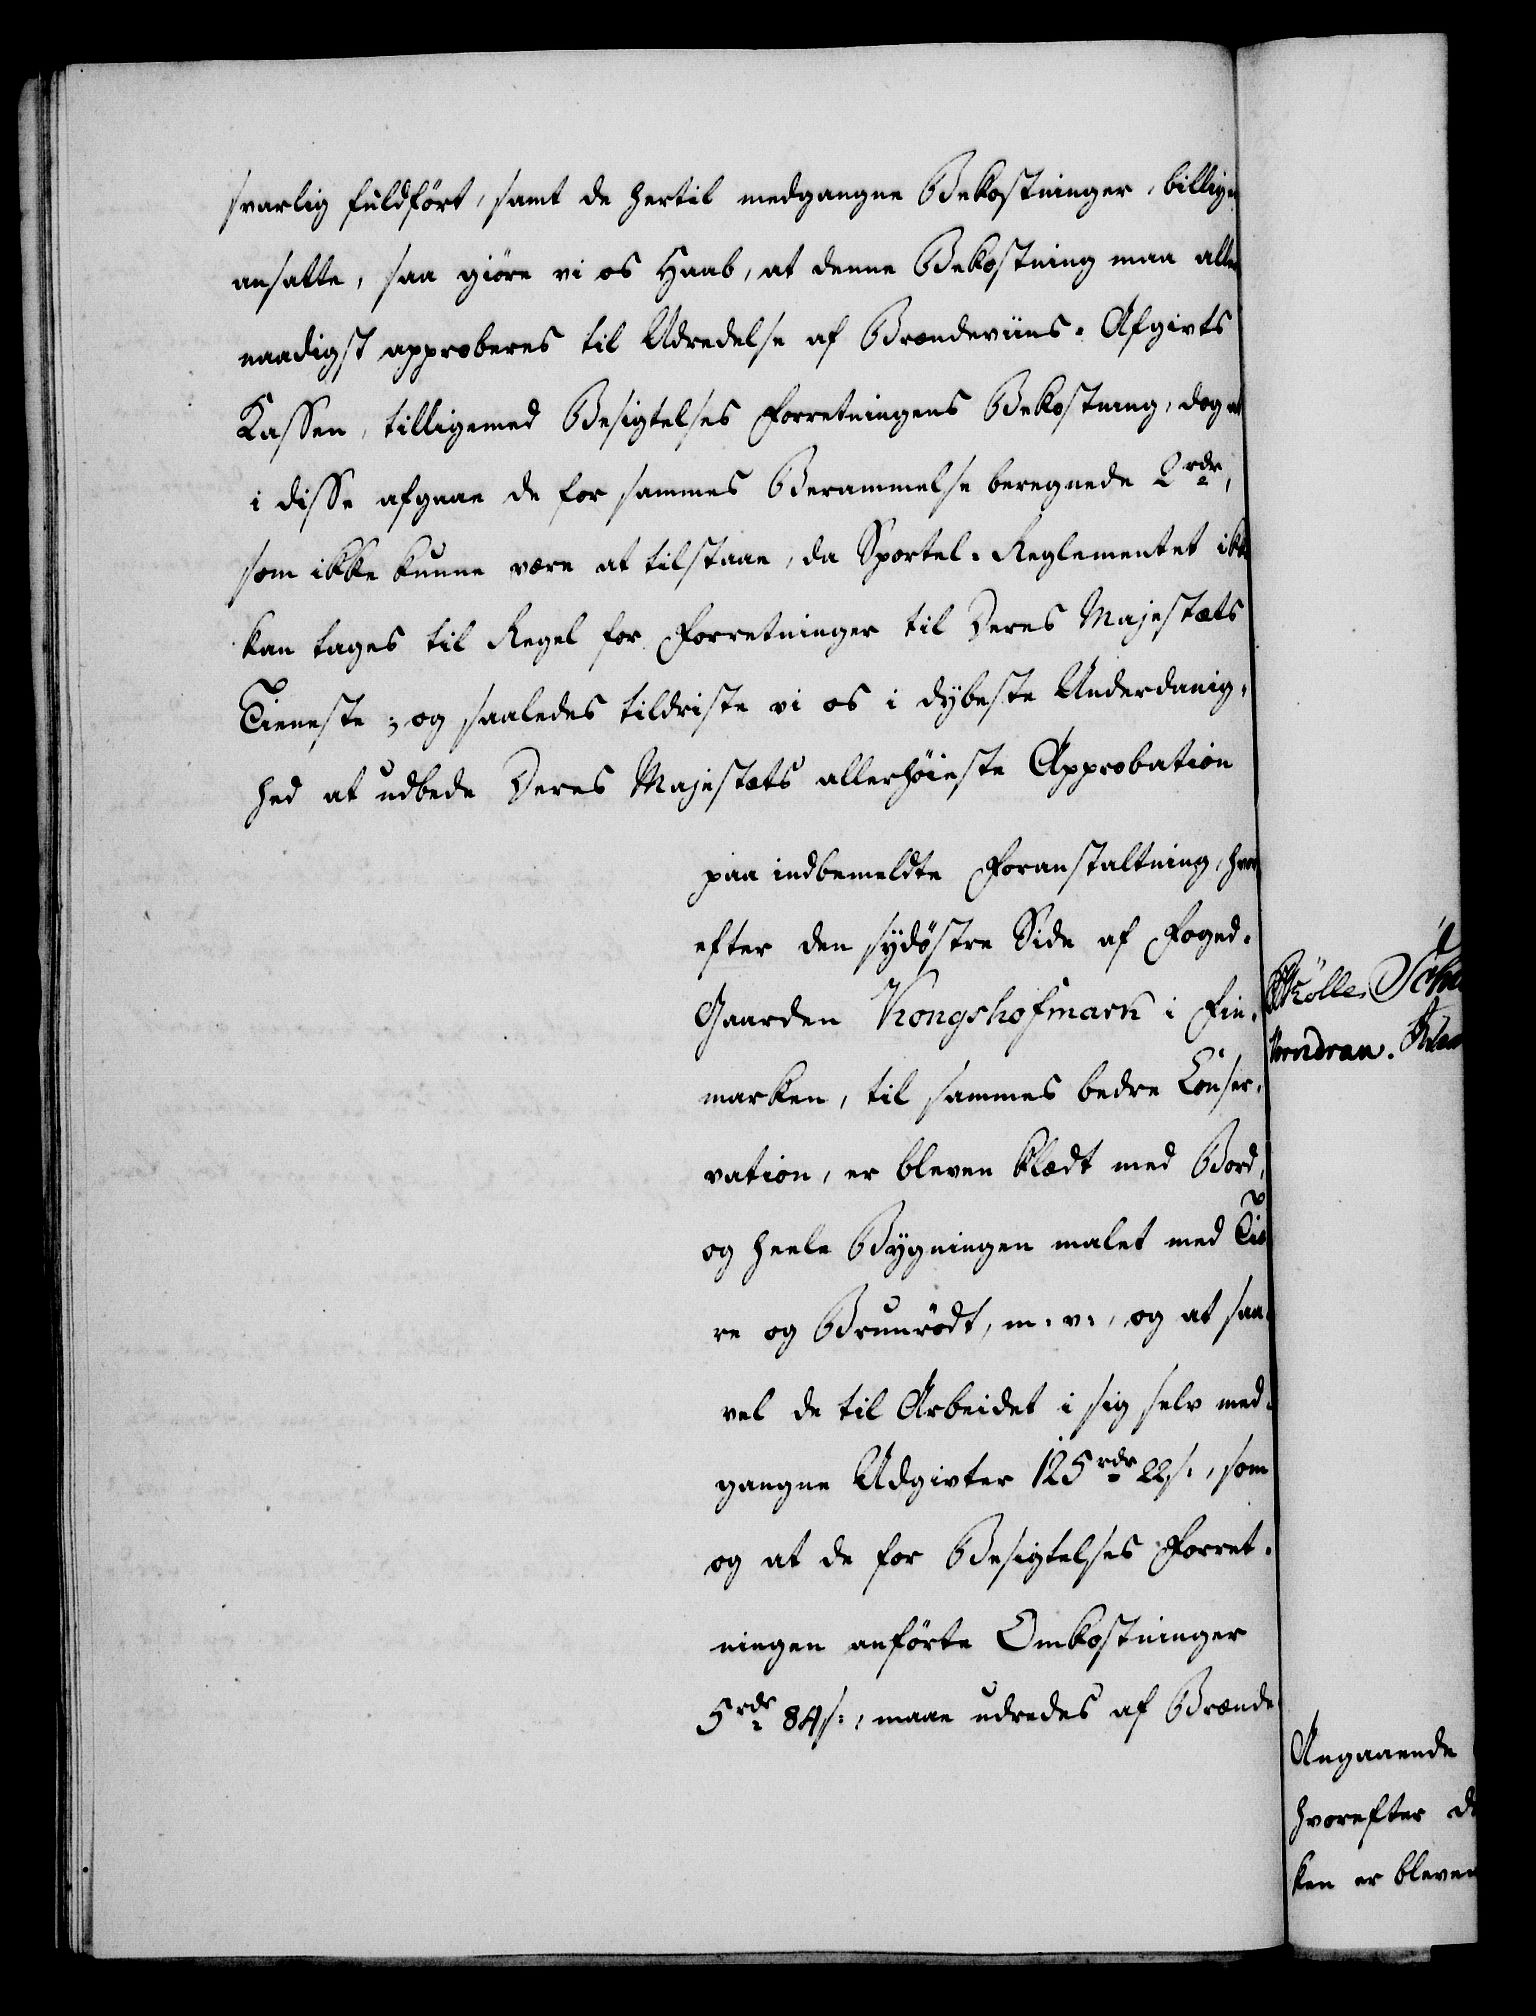 svarlig fuldført, samt de hertil medgangne Bekostninger, billigen
ansatte, saa giøre vi os Haab, at denne Bekostning maa aller
naadigst approberes til Udredelse af Brændeviins-Afgivts
Kassen, tilligemed Besigtelses Forretningens Bekostning, dog at
i disse afgaae de for sammes Berammelse beregnede 2 rdr,
som ikke kunne være at tilstaae, da Sportel-Reglementet ikke
kan tages til Regel for Forretninger til Deres Majestæts
Tieneste; og saaledes tildriste vi os i dybeste Underdanig-
hed at udbede Deres Majestæts allerhøieste Approbation
paa indbemeldte Foranstaltning, hvor
efter den sydøstre Side af Foged-
Gaarden Kongshofmark i Fin-
marken, til sammes bedre Conser-
vation, er bleven klædt med Bord,
og heele Bygningen malet med Tiæ
re og Bruunrødt, m. v., og at saa-
vel de til Arbeidet i sig selv med-
gangne Udgivter 125 rdr 22 s., som
og at de for Besigtelses Forret-
ningen anførte Omkostninger
5 rdr 84 s:, maae udredes af Brænde
Angaaende
hvorefter
ken er bleven